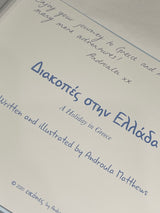 Enjoy your journey to Greece and
many more adventures!
Androulla xx
Διακοπές στην Ελλάδα
A Holiday in Greece
Written and illustrated by Androula Matthews
by Androula